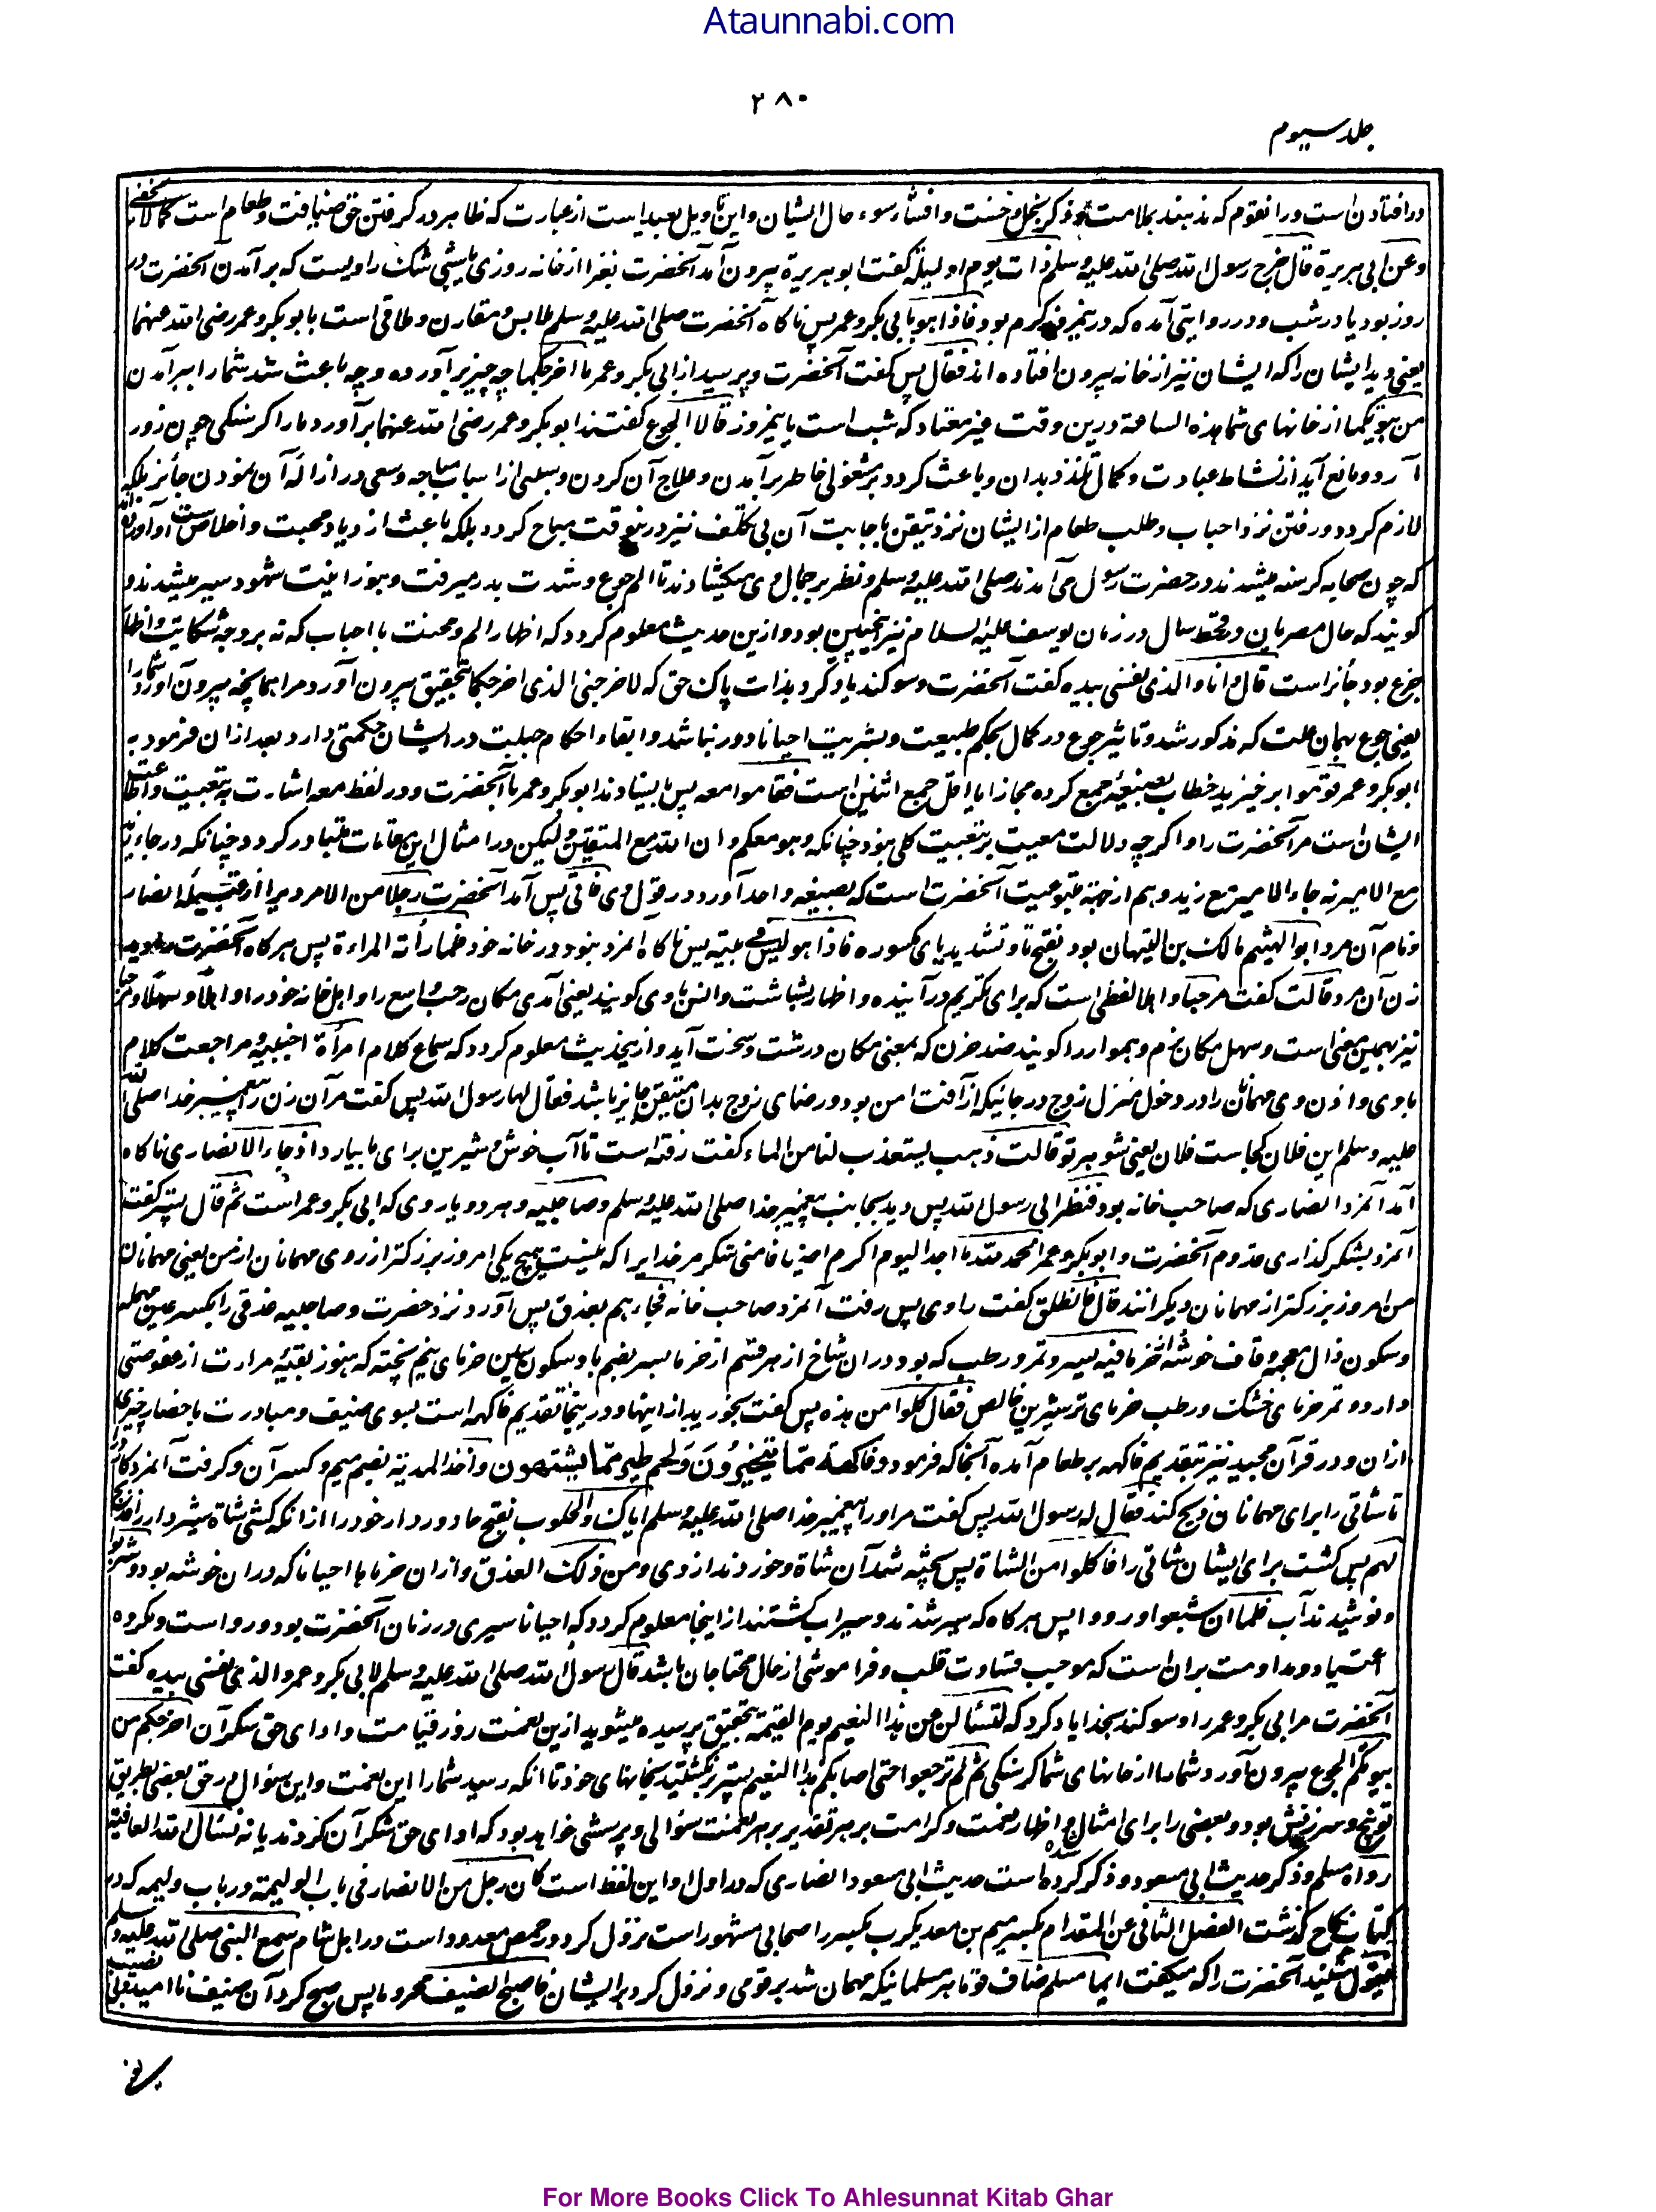 Ataunnabi.com
۲۸۰
جلد سیوم
در افتادن است در انقوم که ندهند بملامت و ذکر بخل و خست و افشاء سوء حال ایشان و این تاویل بعید است از عبارت که ظاهر در گرفتن حق ضیافت و طعام است کما لا یخفی
وعن ابی هریرة قال خرج رسول الله صلی الله علیه وسلم ذات یوم او لیلة گفت ابو هریرة بیرون آمد آنحضرت از خانه روزی یا شبی شک راویست که برآمدن آنحضرت در
روز بود یا در شب و در روایتی آمده که در نیمروز گرم بود فاذا هو بابی بکر و عمر پس ناگاه آنحضرت صلی الله علیه وسلم ملابس و مقارن و ملاقی است بابو بکر و عمر رضی الله عنهما
یعنی دید ایشان را که ایشان نیز از خانه بیرون افتاده اند فقال پس گفت آنحضرت و پرسید از ابی بکر و عمر ما اخرجکما چه چیز برآورده و چه باعث شد شما را ببرآمدن
من بیوتکما از خانهای شما هذه الساعة درین وقت غیر معتاد که شب است یا نیمروز قالا الجوع گفتند ابو بکر و عمر رضی الله عنهما برآورد ما را گرسنگی چون زور
آرد و مانع آید از نشاط عبادت و کمال تلذذ بدان و باعث گردد بر مشغولی خاطر برآمدن و علاج آن کردن و سببی از اسباب مباحه وسعی در ازاله آن نمودن جائز بلکه
لازم گردد و رفتن نزد احباب و طلب طعام از ایشان نزد تیقن باجابت آن بی تکلف نیز درینوقت مباح گردد بلکه باعث ازدیاد محبت و اخلاص است و آورده اند
که چون صحابه گرسنه میشدند در حضرت رسول می آمدند صلی الله علیه وسلم و نظر بر جمال وی میکشادند تا الم جوع و شدت بدر میرفت و بنور انیت شهود سیر میشدند و
گویند که حال مصریان در قحط سال در زمان یوسف علیه السلام نیز همچنین بود و ازین حدیث معلوم گردد که اظهار الم و محنت با احباب که نه بر وجه شکایت و اظهار
جزع بود جائز است قال وانا والذی نفسی بیده گفت آنحضرت و سوگند یاد کرد بذات پاک حق که لاخرجنی الذی اخرجکما بتحقیق بیرون آورد مرا همانچه بیرون آورد شما را
یعنی جوع بهمان علت که مذکور شد و تاثیر جوع در کمال بحکم طبیعت و بشریت احیانا دور نباشد و ابقاء احکام جبلت در ایشان حکمتی دارد بعد ازان فرمود به
ابو بکر و عمر قوموا برخیزید خطاب بصیغه جمع کرده مجازا یا اقل جمع اثنین است فقاموا معه پس بایستادند ابو بکر و عمر با آنحضرت و در لفظ معه اشارت به تبعیت و اطاعت
ایشان است مر آنحضرت را و اگرچه دلالت معیت بر تبعیت کلی نبود چنانکه وهو معکم و ان الله مع المتقین و لیکن در امثال این مقامات متبادر گردد چنانکه در جاء زید
مع الامیر نه جاء الامیر مع زید و هم از جهة متبوعیت آنحضرت است که بصیغه واحد آورد در قول وی فاتی پس آمد آنحضرت رجلا من الانصار مردیرا از قبیله انصار
و نام آن مرد ابو الهیثم مالک بن التیهان بود بفتح تا و تشدید یای مکسوره فاذا هو لیس فی بیته پس ناگاه آنمرد نبود در خانه خود فلما رأته المراءة پس هرگاه آنحضرت را دید
زن آن مرد قالت گفت مرحبا و اهلا لفظی است که برای تکریم درآینده و اظهار بشاشت و انس باوی گویند یعنی آمدی مکان رحب و اسع را و اهل خانه خود را و اهلا و سهلا و مرحبا
نیز بهمین معنی است و سهل مکان نرم و هموار را گویند ضد حزن که بمعنی مکان درشت و سخت آید و ازینحدیث معلوم گردد که سماع کلام امرأة اجنبیه و مراجعت کلام
باوی و اذن وی مهمانان را در دخول منزل زوج در جائیکه از آفت امن بود و رضای زوج بدان متیقن جایز باشد فقال لها رسول الله پس گفت مر آن زن را پیغمبر خدا صلی الله
علیه وسلم این فلان کجاست فلان یعنی شوهر تو قالت ذهب یستعذب لنا من الماء گفت رفته است تا آب خوش و شیرین برای ما بیارد اذ جاء الانصاری ناگاه
آمد آنمرد انصاری که صاحب خانه بود فنظر الی رسول الله پس دید بجانب پیغمبر خدا صلی الله علیه وسلم وصاحبیه و هر دو یار وی که ابی بکر و عمر است ثم قال پستر گفت
آنمرد بشکر گذاری قدوم آنحضرت و ابو بکر و عمر الحمد لله ما احد الیوم اکرم اضیافا منی شکر مر خدایرا که نیست هیچ یکی امروز بزرگتر از روی مهمانان از من یعنی مهمانان
من امروز بزرگتر از مهمانان دیگرانند قال فانطلق گفت راوی پس رفت آنمرد صاحب خانه فجاءهم بعذق پس آورد نزد حضرت و صاحبیه عذقی را بکسر عین مهمله
و سکون ذال معجمه و قاف خوشه از خرما فیه بسر و تمر و رطب که بود دران شاخ از هر قسم از خرما بسر بضم با و سکون سین خرمای نیم پخته که هنوز بقیه مرارت از عفوصتی
دارد و تمر خرمای خشک و رطب خرمای تر شیرین خالص فقال کلوا من هذه پس گفت بخورید ازاینها و درینجا تقدیم فاکهه است بسوی ضیف و مبادرت باحضار چیزی
ازان و در قرآن مجید نیز تقدیم فاکهه بر طعام آمده آنجا که فرمود وفاکهة مما یتخیرون ولحم طیر مما یشتهون واخذ المدیة بضم میم و کسر آن و گرفت آنمرد کارد را
تا شاتی را برای مهمانان ذبح کند فقال له رسول الله پس گفت مر او را پیغمبر خدا صلی الله علیه وسلم ایاک والحلوب بفتح حا و دور دار خود را ازانکه کشی شاة شیردار را فذبح
لهم پس کشت برای ایشان شاتی را فاکلوا من الشاة پس پخته شد آن شاة و خوردند از وی ومن ذلک العذق و ازان خرما یا احیانا که دران خوشه بود و شربوا
و نوشیدند آب فلما ان شبعوا و رووا پس هرگاه که سیر شدند و سیراب گشتند ازاینجا معلوم گردد که احیانا سیری در زمان آنحضرت بود و روا است و مکروه
اعتیاد و مداومت بران است که موجب قساوت قلب و فراموشی از حال محتاجان باشد قال رسول الله صلی الله علیه وسلم لابی بکر وعمر والذی نفسی بیده گفت
آنحضرت مر ابی بکر و عمر را و سوگند بخدا یاد کرد که لتسئلن عن هذا النعیم یوم القیمة بتحقیق پرسیده میشوید ازین نعمت روز قیامت و ادای حق شکر آن اخرجکم من
بیوتکم الجوع بیرون آورد شما را از خانهای شما گرسنگی ثم لم ترجعوا حتی اصابکم هذا النعیم پستر برنگشتید بخانهای خود تا آنکه رسید شما را این نعمت و این سؤال در حق بعضی بطریق
توبیخ و سرزنش بود و بعضی را برای امثال و اظهار نعمت و کرامت بر هر تقدیر بر هر نعمت سؤالی و پرسشی خواهد بود که ادای حق شکر آن کردند یا نه نسأل الله العافیة
رواه مسلم و ذکر حدیث ابی مسعود و ذکر کرده شده است حدیث ابی مسعود انصاری که در اول او این لفظ است کان رجل من الانصار فی باب الولیمة در باب ولیمه که در
کتاب نکاح گذشت الفصل الثانی عن المقدام بکسر میم بن معدیکرب بکسر را صحابی مشهور است نزول کرد در حمص معدود است در اهل شام سمع النبی صلی الله علیه وسلم
یقول شنید آنحضرت را که میگفت ایما مسلم ضاف قوما هر مسلمانیکه مهمان شد بر قومی و نزول کرد بر ایشان فاصبح الضیف محروما پس صبح کرد آن ضیف ناامید و بی نصیب
For More Books Click To Ahlesunnat Kitab Ghar